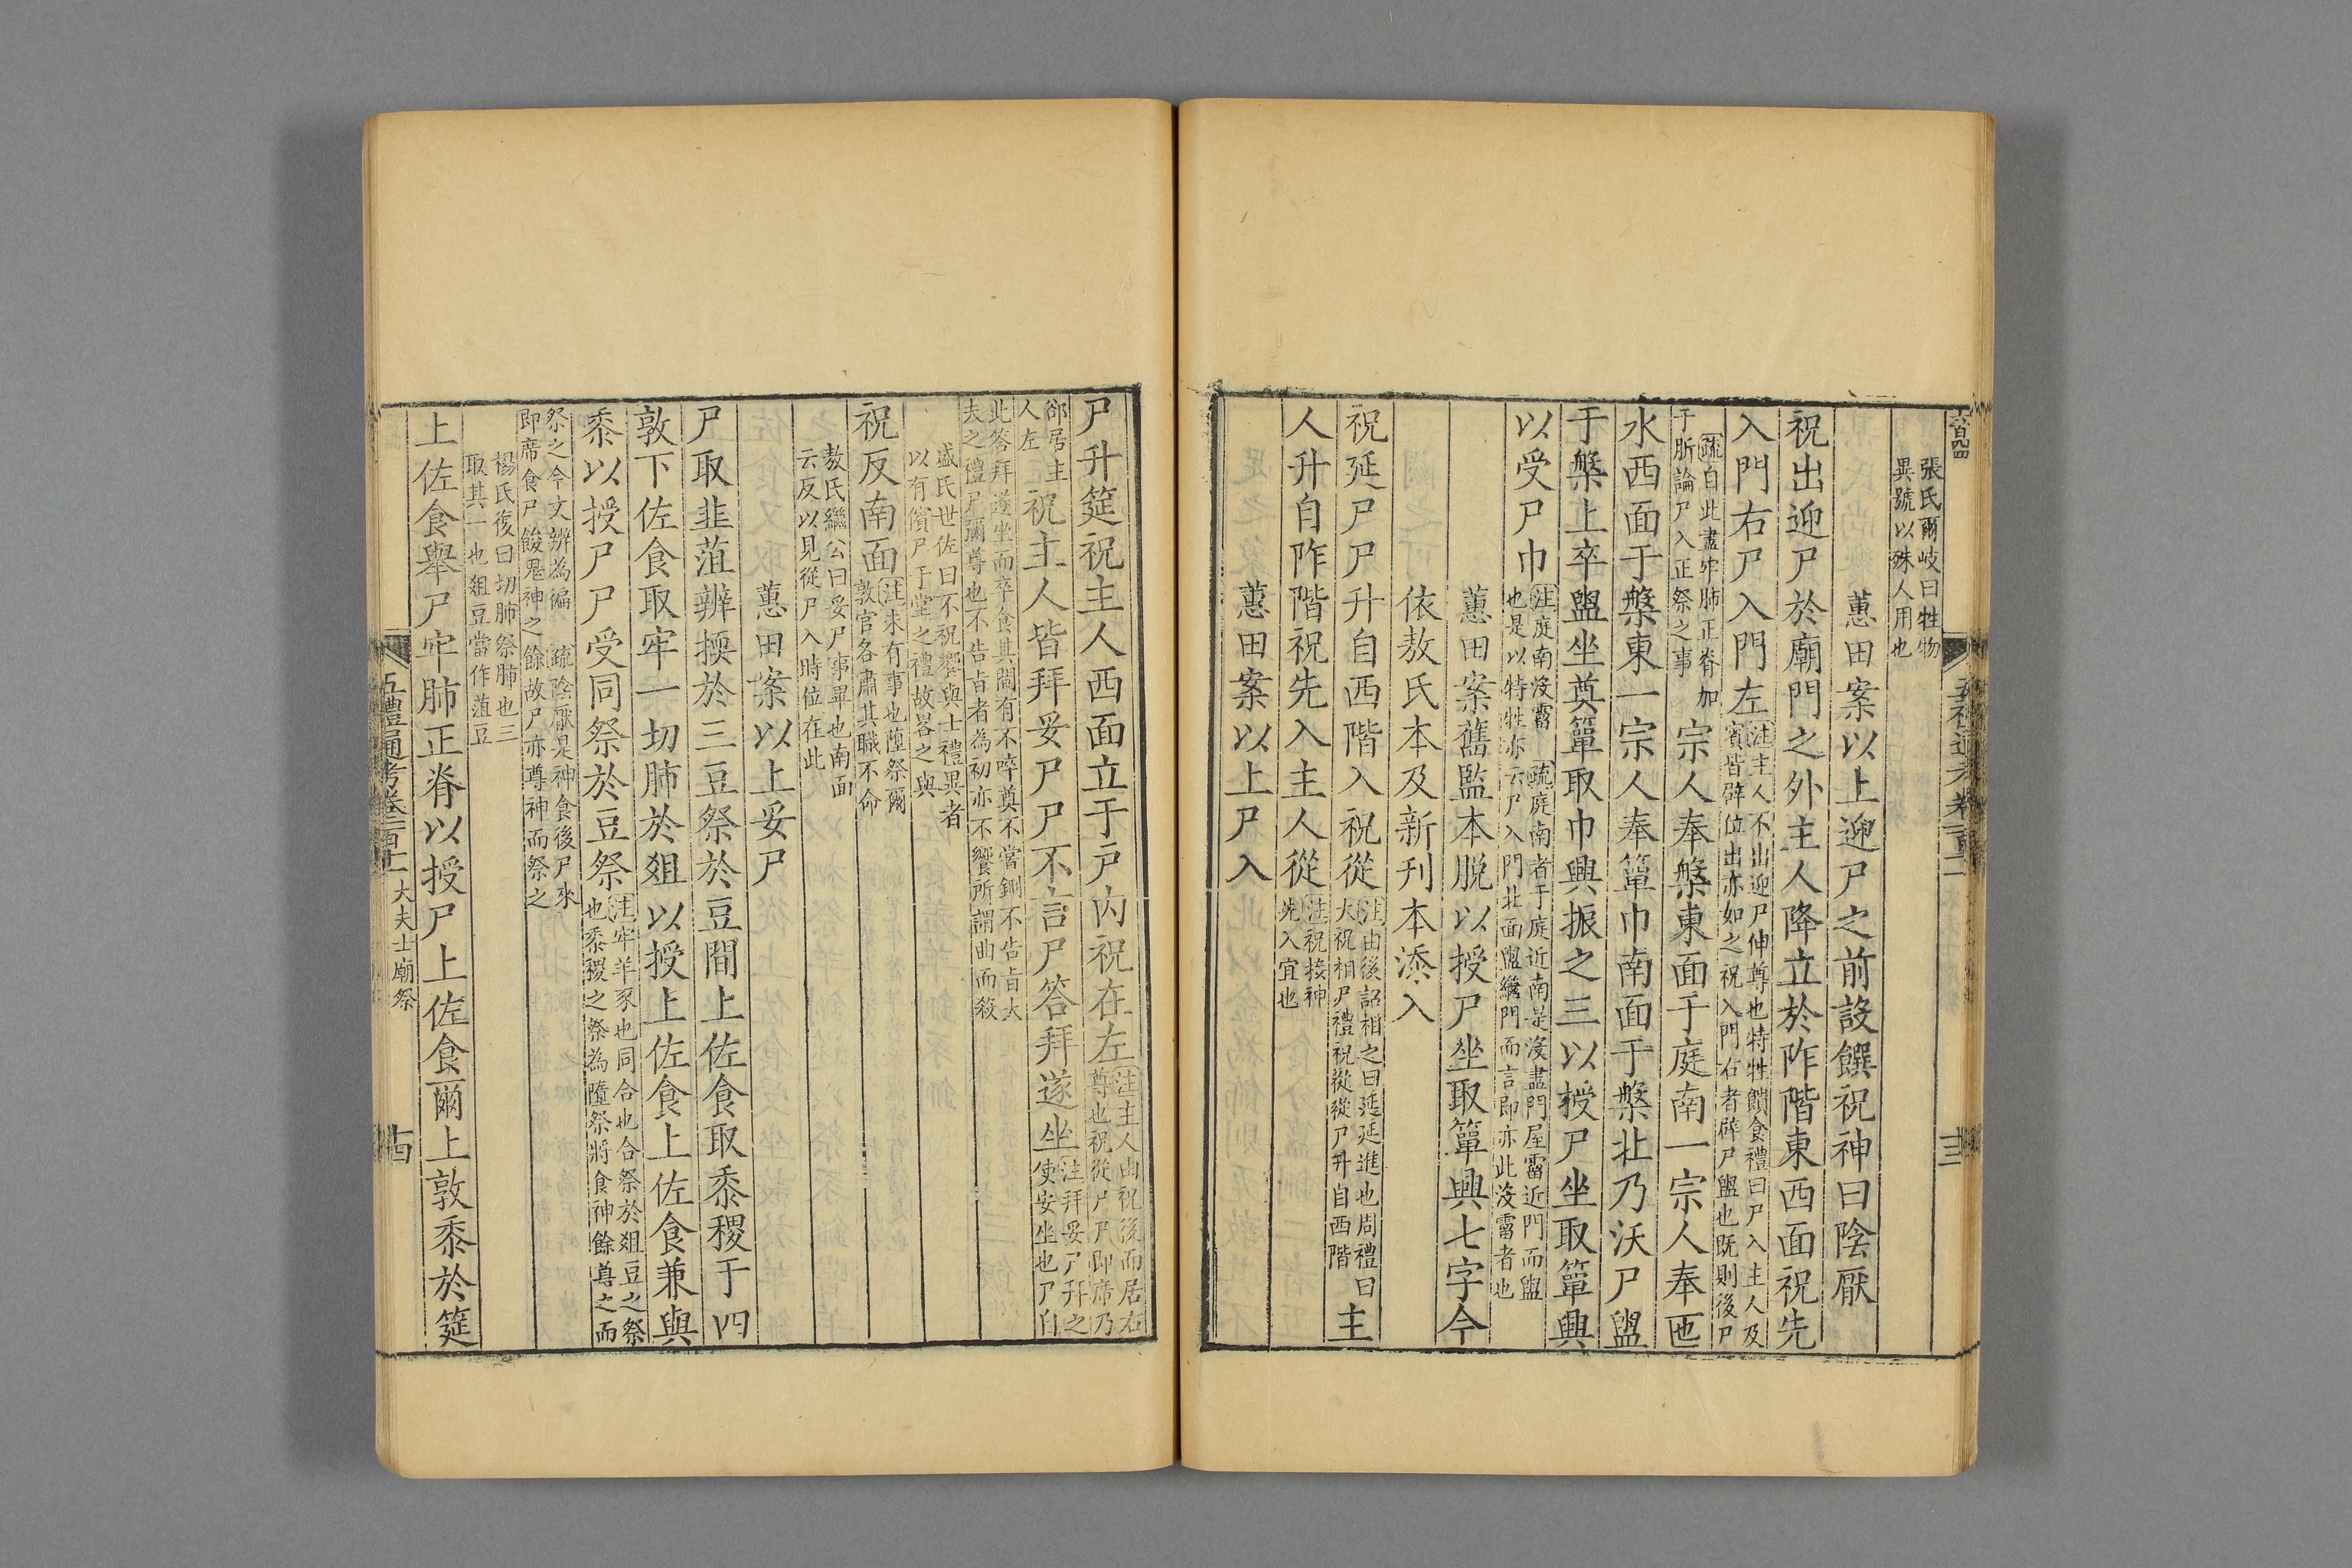 張氏爾岐曰牲物
異號以殊人用也
蕙田案以上迎尸之前設饌祝神曰陰厭
祝出迎尸於廟門之外主人降立於阼階東西面祝先
入門右尸入門左注主人不出迎尸伸尊也特牲饋食禮曰尸入主人及
賓皆辟位出亦如之祝入門右者辟尸盥也既則後尸
疏自此盡牢肺正脊加
于肵論尸入正祭之事
宗人奉槃東面于庭南一宗人奉匜
水西面于槃東一宗人奉簞巾南面于槃北乃沃尸盥
于槃上卒盥坐奠簞取巾興振之三以授尸坐取簞興
以受尸巾注庭南沒霤 疏庭南者于庭近南是沒盡門屋霤近門而盥
也是以特牲亦云尸入門北面盥繼門而言即亦此沒霤者也
蕙田案舊監本脱以授尸坐取簞興七字今
依敖氏本及新刊本添入
祝延尸尸升自西階入祝從注由後詔相之曰延延進也周禮曰
大祝相尸禮祝從從尸升自西階
主
人升自阼階祝先入主人從注祝接神
先入宜也
蕙田案以上尸入
尸升筵祝主人西面立于戶内祝在左注主人由祝後而居右
尊也祝從尸尸即席乃
郤居主
人左
祝主人皆拜妥尸尸不言尸答拜遂坐注拜妥尸升之
使安坐也尸自
此答拜遂坐而卒食其間有不啐奠不嘗鉶不告旨大
夫之禮尸彌尊也不告旨者為初亦不饗所謂曲而殺
盛氏世佐曰不祝饗與士禮異者
以有儐尸于堂之禮故畧之與
祝反南面注未有事也墮祭爾
敦官各肅其職不命
敖氏繼公曰妥尸事畢也南面
云反以見從尸入時位在此
蕙田案以上妥尸
尸取韭菹辨㨎於三豆祭於豆間上佐食取黍稷于四
敦下佐食取牢一切肺於俎以授上佐食上佐食兼與
黍以授尸尸受同祭於豆祭注牢羊豕也同合也合祭於俎豆之祭
也黍稷之祭為墮祭將食神餘尊之而
祭之今文辨為徧 疏陰厭是神食後尸來
即席食尸餕鬼神之餘故尸亦尊神而祭之
楊氏復曰切肺祭肺也三
取其一也俎豆當作菹豆
上佐食舉尸牢肺正脊以授尸上佐食爾上敦黍於筵
五禮通考卷一百十一 大夫士廟祭
十四